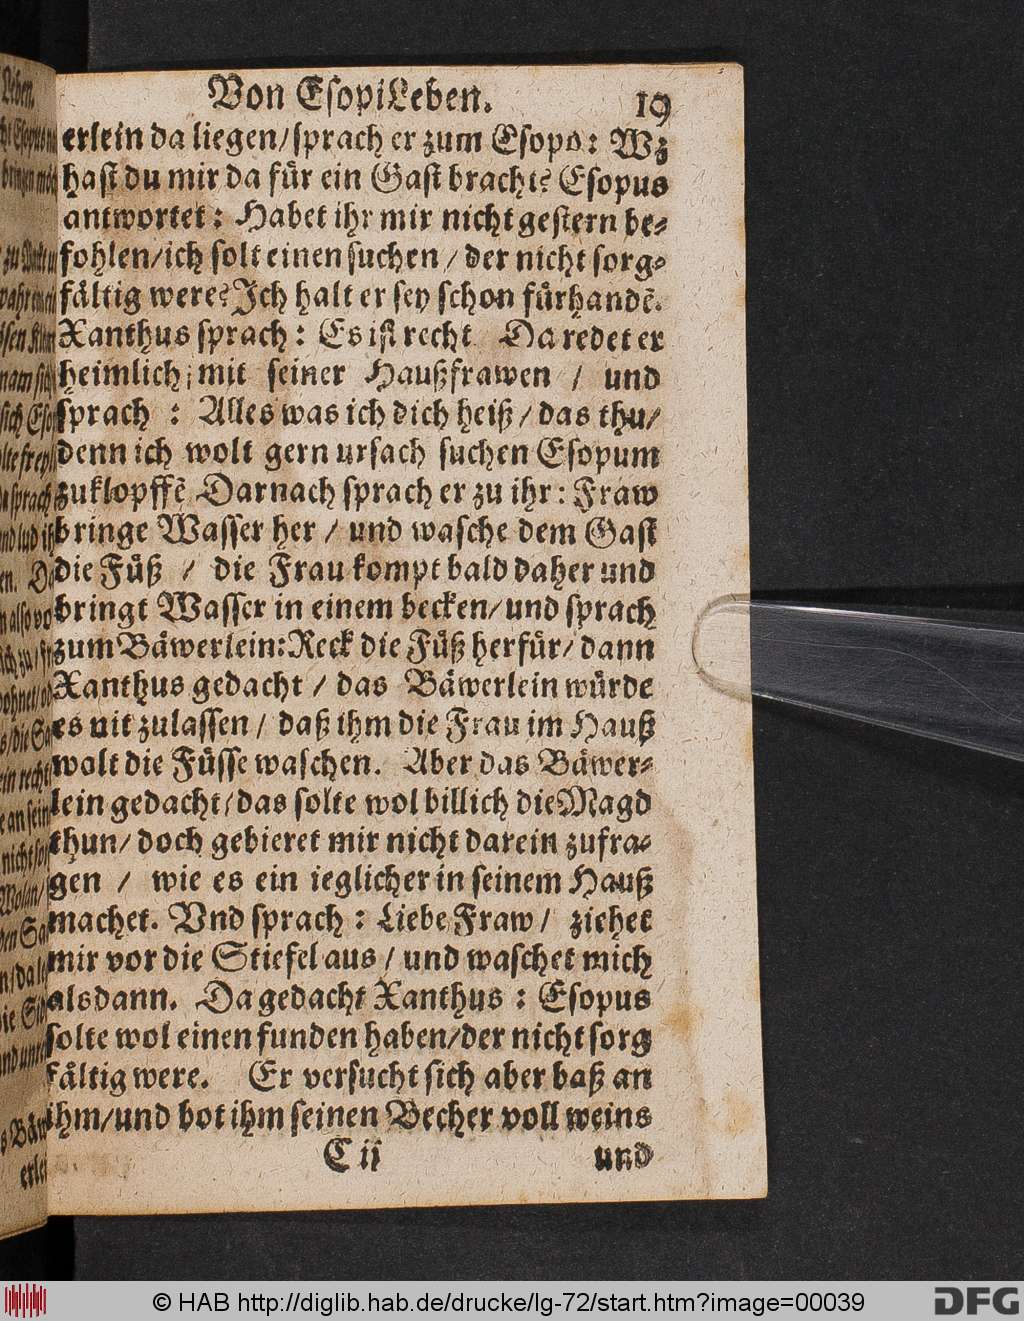 Von Esopi Leben. 19
erlein da liegen/ sprach er zum Esopo: Wz
hast du mir da für ein Gast bracht? Esopus
antwortet: Habet ihr mir nicht gestern be-
fohlen/ ich solt einen suchen/ der nicht sorg-
fältig were? Ich halt er sey schon fürhandē.
Xanthus sprach: Es ist recht Da redet er
heimlich, mit seiner Haußfrawen / und
sprach : Alles was ich dich heiß/ das thu/
denn ich wolt gern ursach suchen Esopum
zuklopffē Darnach sprach er zu ihr: Fraw
bringe Wasser her / und wasche dem Gast
die Füß / die Frau kompt bald daher und
bringt Wasser in einem becken/ und sprach
zum Bäwerlein: Reck die Füß herfür/ dann
Xanthus gedacht / das Bäwerlein würde
es nit zulassen / daß ihm die Frau im Hauß
wolt die Füsse waschen. Aber das Bäwer-
lein gedacht/ das solte wol billich die Magd
thun/ doch gebieret mir nicht darein zufra-
gen / wie es ein ieglicher in seinem Hauß
machet. Vnd sprach : Liebe Fraw/ ziehet
mir vor die Stiefel aus / und waschet mich
alsdann. Da gedacht Xanthus : Esopus
solte wol einen funden haben/ der nicht sorg
fältig were. Er versucht sich aber baß an
ihm/ und bot ihm seinen Becher voll weins
C ij und
© HAB http://diglib.hab.de/drucke/lg-72/start.htm?image=00039
DFG